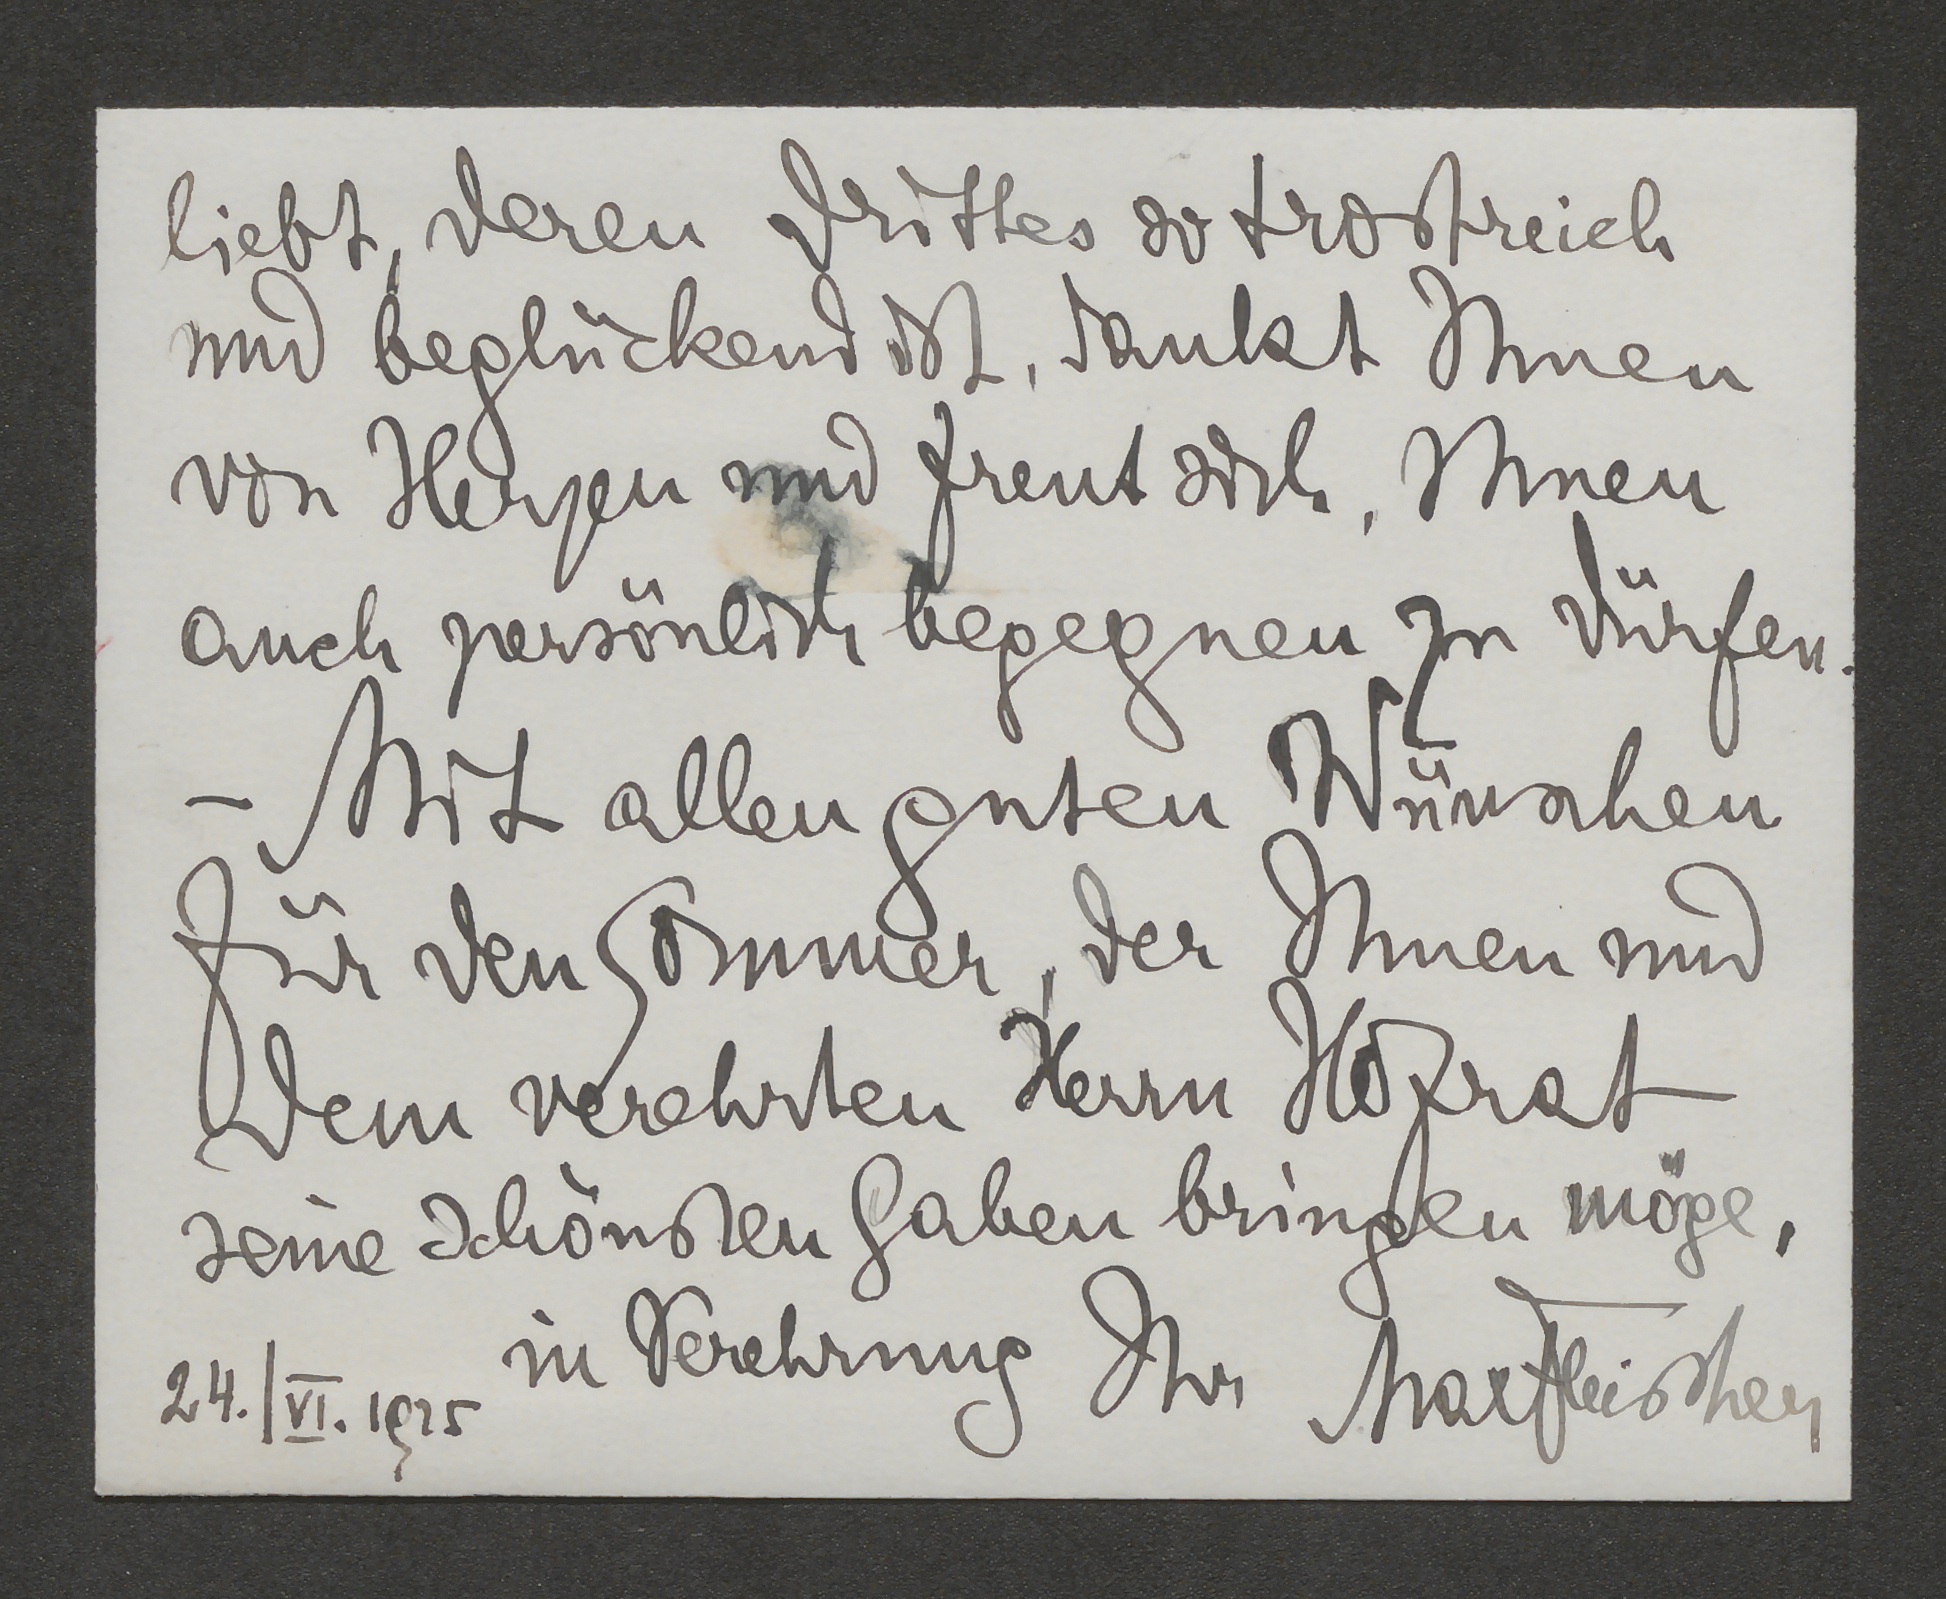 liebt, deren Drittes so trostreich
und beglückend ist, dankt Ihnen
von Herzen und freut sich, Ihnen
auch persönlich begegnen zu dürfen.
- Mit allen guten Wünschen
für den Sommer, der Ihnen und
dem verehrten Herrn Hofrat
seine schönsten Gaben bringen möge,
in Verehrung Ihr Max Fleischer
24./VI. 1925